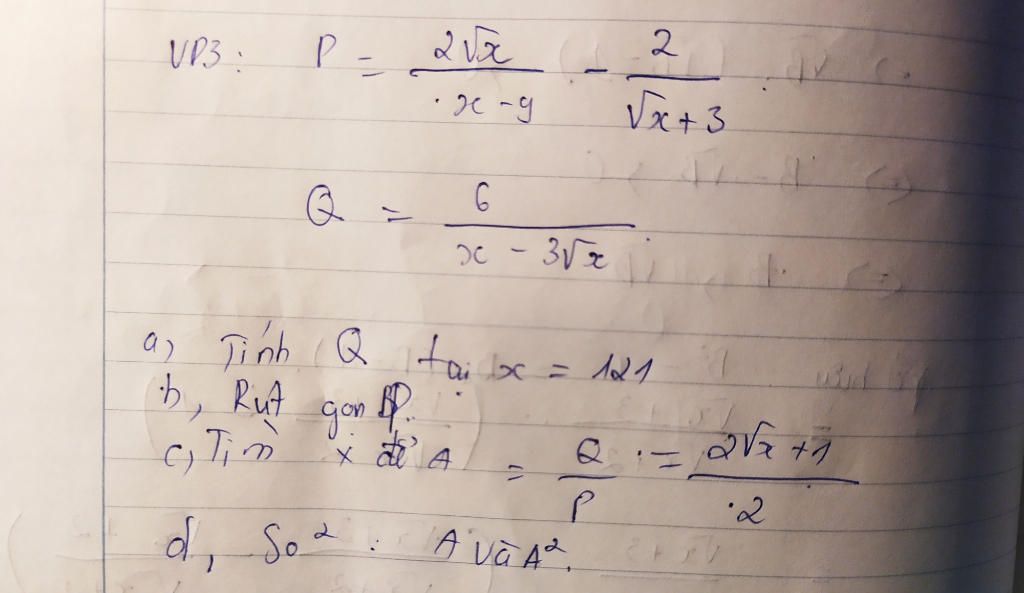 VD3: P = 2√x / x - 9 - 2 / √x + 3
Q = 6 / x - 3√x
a, Tính Q tại x = 121
b, Rút gọn P.
c, Tìm x để A = Q / P = 2√x + 1 / 2
d, So² : A và A².